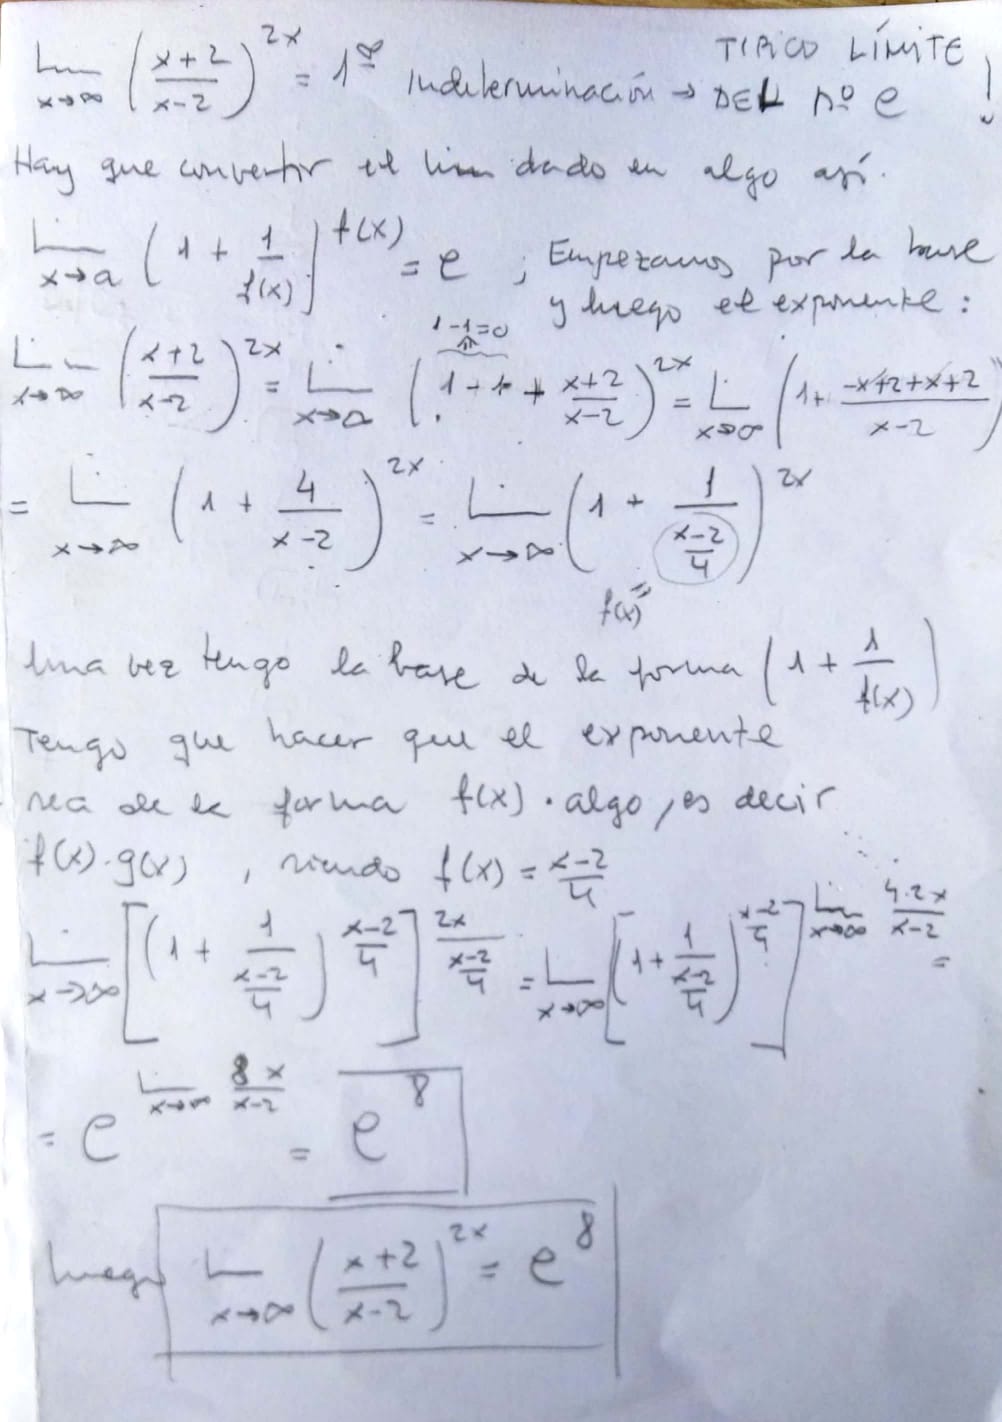 lim x→∞ (x+2/x-2)^2x = 1^∞ Indeterminación → TIPICO LÍMITE DEL nº e !
Hay que convertir el lim dado en algo así.
lim x→a (1 + 1/f(x)]^f(x) = e ; Empezamos por la base
y luego el exponente:
1-1=0
lim x→∞ (x+2/x-2)^2x = lim x→∞ (1-1+ x+2/x-2)^2x = lim x→∞ (1+ -x+2+x+2/x-2)
= lim x→∞ (1 + 4/x-2)^2x = lim x→∞ (1 + 1/(x-2/4))^2x
f(x)"
Una vez tengo la base de la forma (1 + 1/f(x))
Tengo que hacer que el exponente
sea de la forma f(x) · algo, es decir
f(x)·g(x) , siendo f(x) = x-2/4
lim x→∞ [(1 + 1/(x-2/4))^x-2/4]^2x/(x-2/4) = lim x→∞ [(1+ 1/(x-2/4))^x-2/4]^lim x→∞ 4·2x/x-2 =
= e^lim x→∞ 8x/x-2 = e^8
luego lim x→∞ (x+2/x-2)^2x = e^8